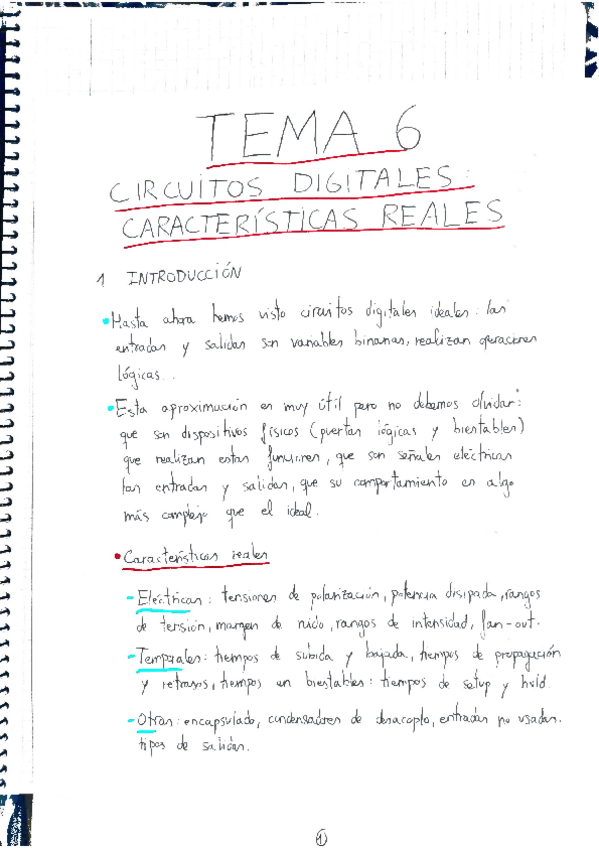 TEMA 6
CIRCUITOS DIGITALES:
CARACTERÍSTICAS REALES
1 INTRODUCCIÓN
• Hasta ahora hemos visto circuitos digitales ideales: las
entradas y salidas son variables binarias, realizan operaciones
lógicas...
• Esta aproximación es muy útil pero no debemos olvidar:
que son dispositivos físicos (puertas lógicas y biestables)
que realizan estas funciones, que son señales eléctricas
las entradas y salidas, que su comportamiento es algo
más complejo que el ideal.
• Características reales
- Eléctricas: tensiones de polarización, potencia disipada, rangos
de tensión, margen de ruido, rangos de intensidad, fan-out.
- Temporales: tiempos de subida y bajada, tiempos de propagación
y retrasos, tiempos en biestables: tiempos de setup y hold.
- Otras: encapsulado, condensadores de desacoplo, entradas no usadas.
tipos de salidas.
1